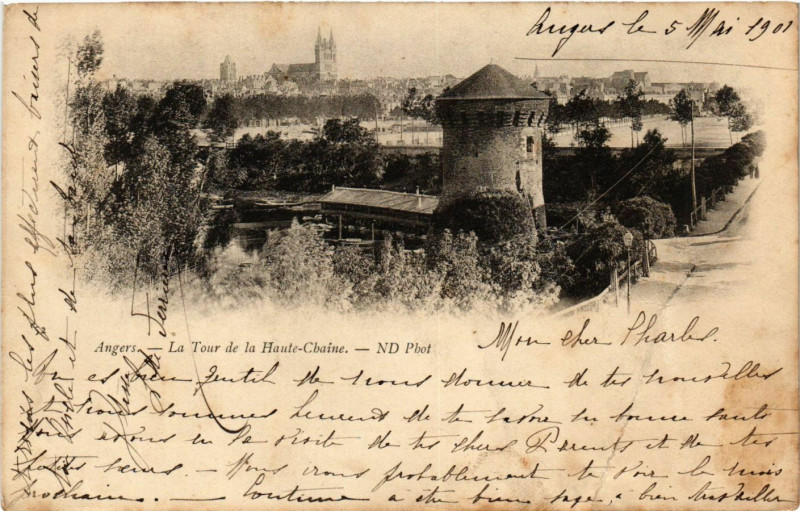 Angers le 5 Mai 1901
Angers. — La Tour de la Haute-Chaîne. — ND Phot
Mon cher Charles.
Tu es bien gentil de nous donner de tes nouvelles
et nous sommes heureux de te savoir en bonne santé
Nous avons eu la visite de tes chers Parents et de tes
petites sœurs. — Nous irons probablement te voir le mois
prochain. — Continue à être bien sage, à bien travailler
les plus affectueux baisers de
et de